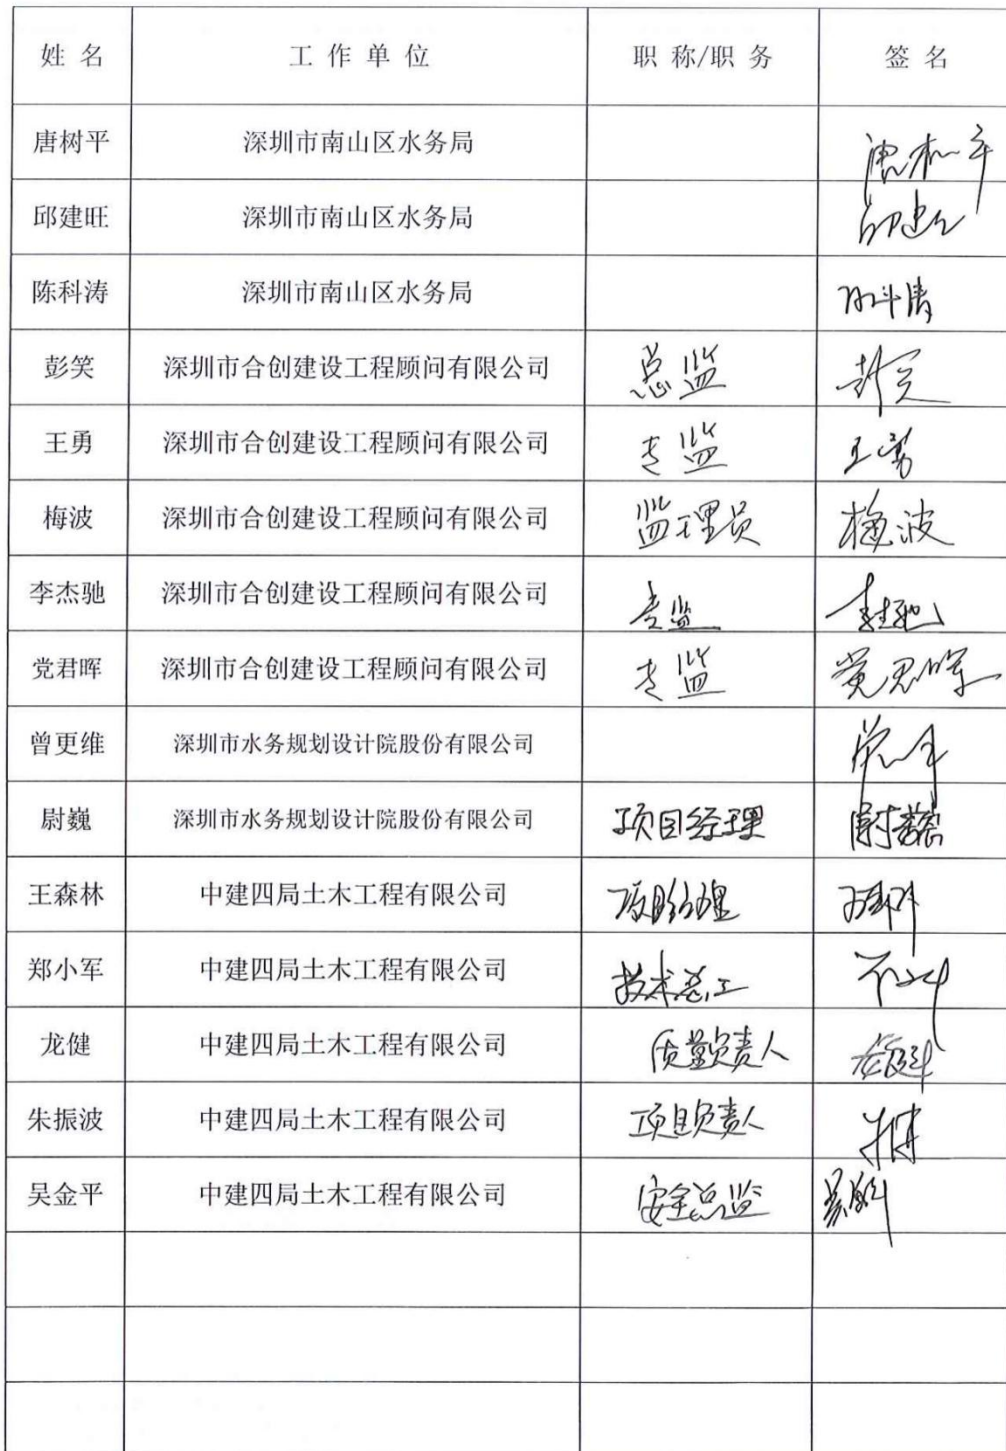 姓 名 工 作 单 位 职 称/职 务 签 名
唐树平 深圳市南山区水务局
邱建旺 深圳市南山区水务局
陈科涛 深圳市南山区水务局
彭笑 深圳市合创建设工程顾问有限公司 总监
王勇 深圳市合创建设工程顾问有限公司 专监 王勇
梅波 深圳市合创建设工程顾问有限公司 监理员 梅波
李杰驰 深圳市合创建设工程顾问有限公司 专监
党君晖 深圳市合创建设工程顾问有限公司 专监 党君晖
曾更维 深圳市水务规划设计院股份有限公司
尉巍 深圳市水务规划设计院股份有限公司 项目经理 尉巍
王森林 中建四局土木工程有限公司 项目经理
郑小军 中建四局土木工程有限公司 技术总工
龙健 中建四局土木工程有限公司 质量负责人
朱振波 中建四局土木工程有限公司 项目负责人
吴金平 中建四局土木工程有限公司 安全总监